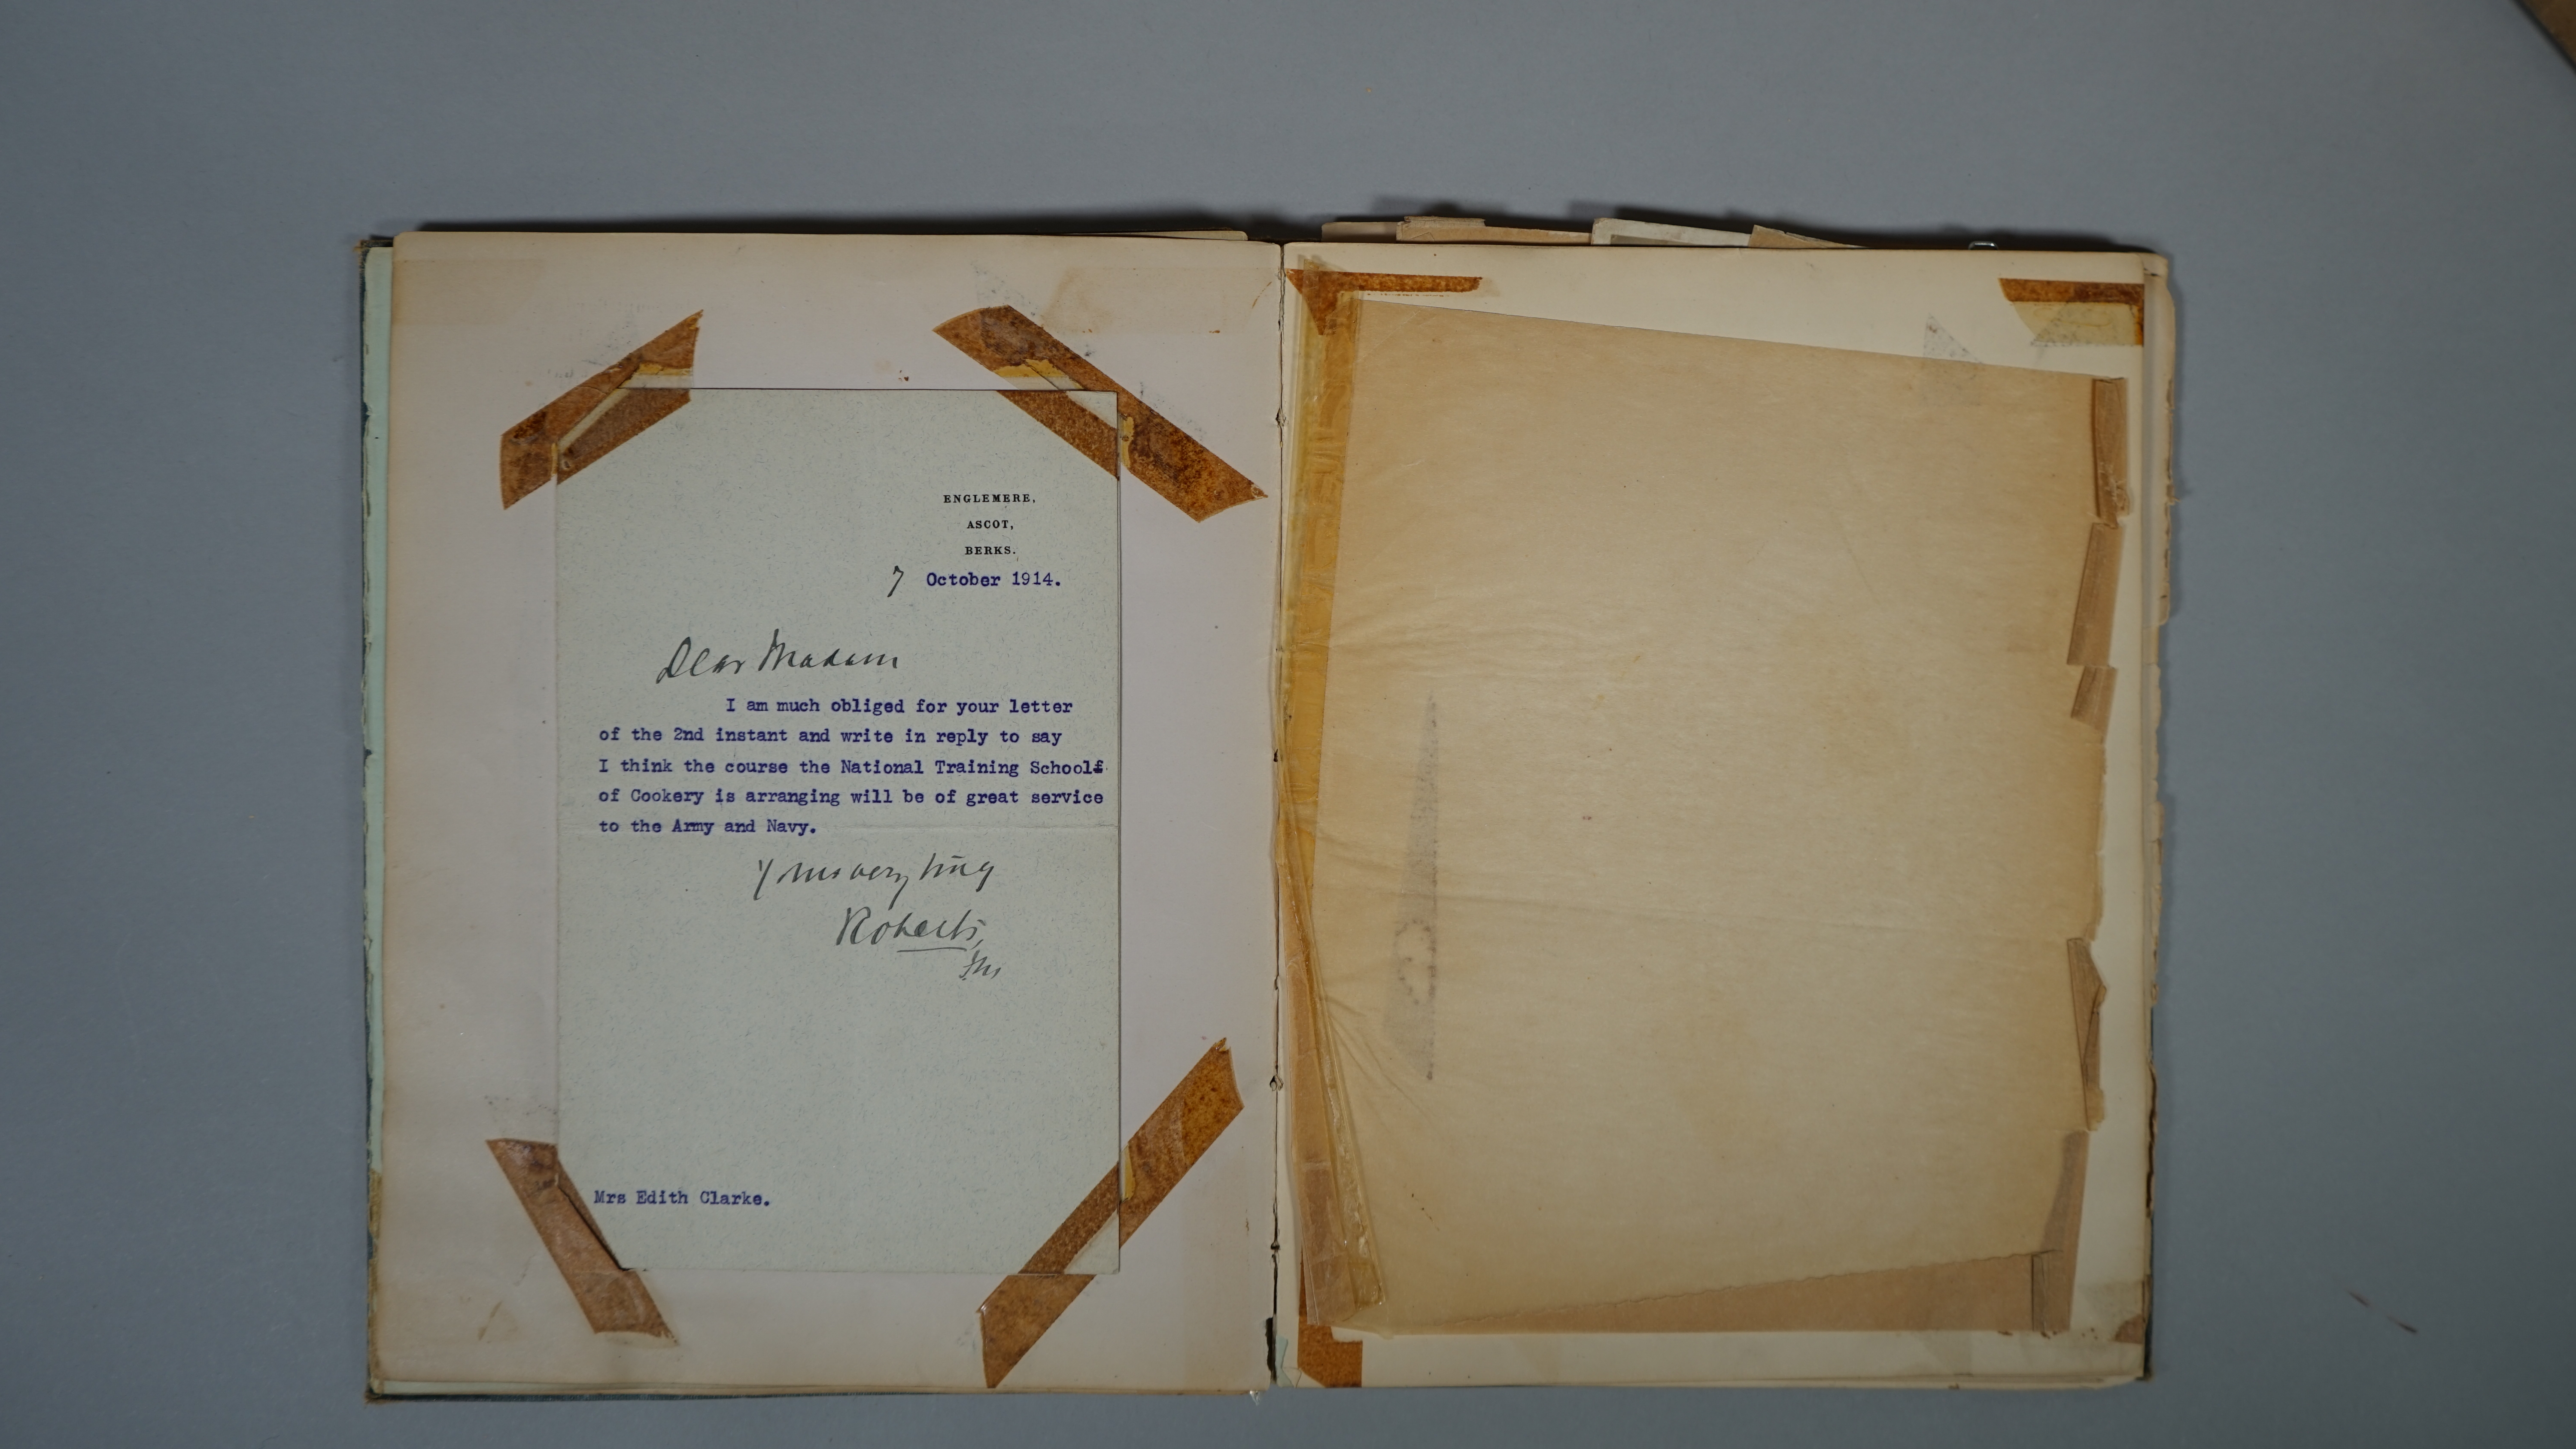 ENGLEMERE,
ASCOT,
BERKS.
7 October 1914.
Dear Madam
I am much obliged for your letter
of the 2nd instant and write in reply to say
I think the course the National Training School
of Cookery is arranging will be of great service
to the Army and Navy.
Yours very truly
Roberts,
FM
Mrs Edith Clarke.